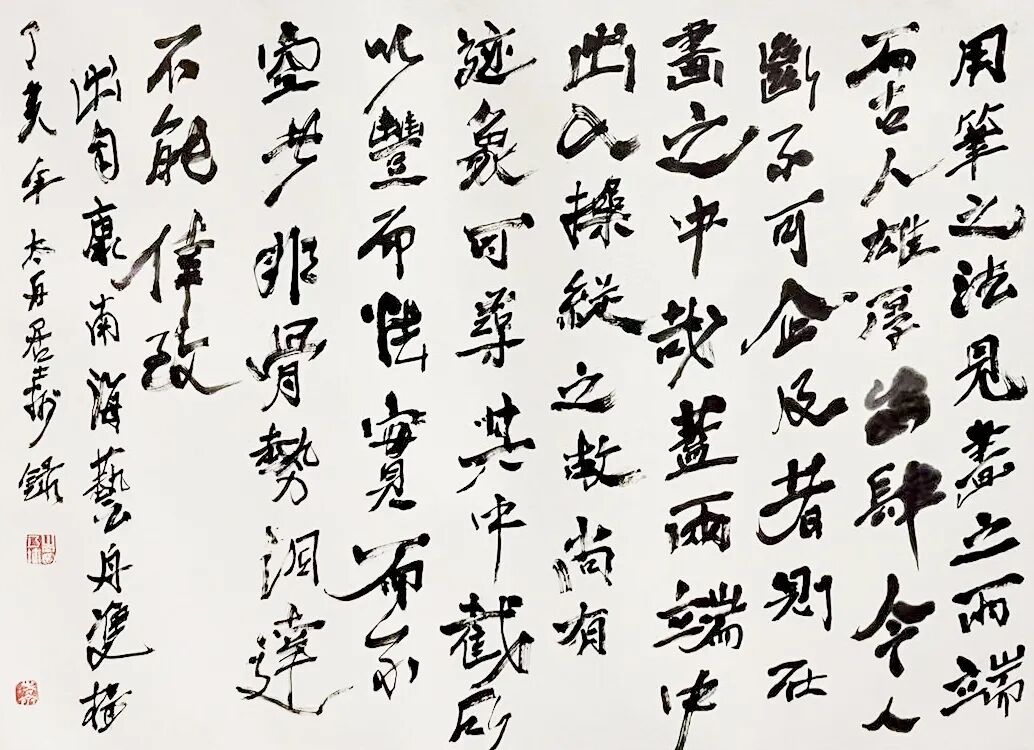 用筆之法見畫之兩端
而古人雄厚恣肆令人
斷不可企及者則在
畫之中截蓋兩端中
出入操縱之故尚有
迹象可尋其中截所
以豐而怯實而不
空者非骨勢洞達
不能倖致
出自康南海藝舟雙楫
丁亥年太舟居士抄錄